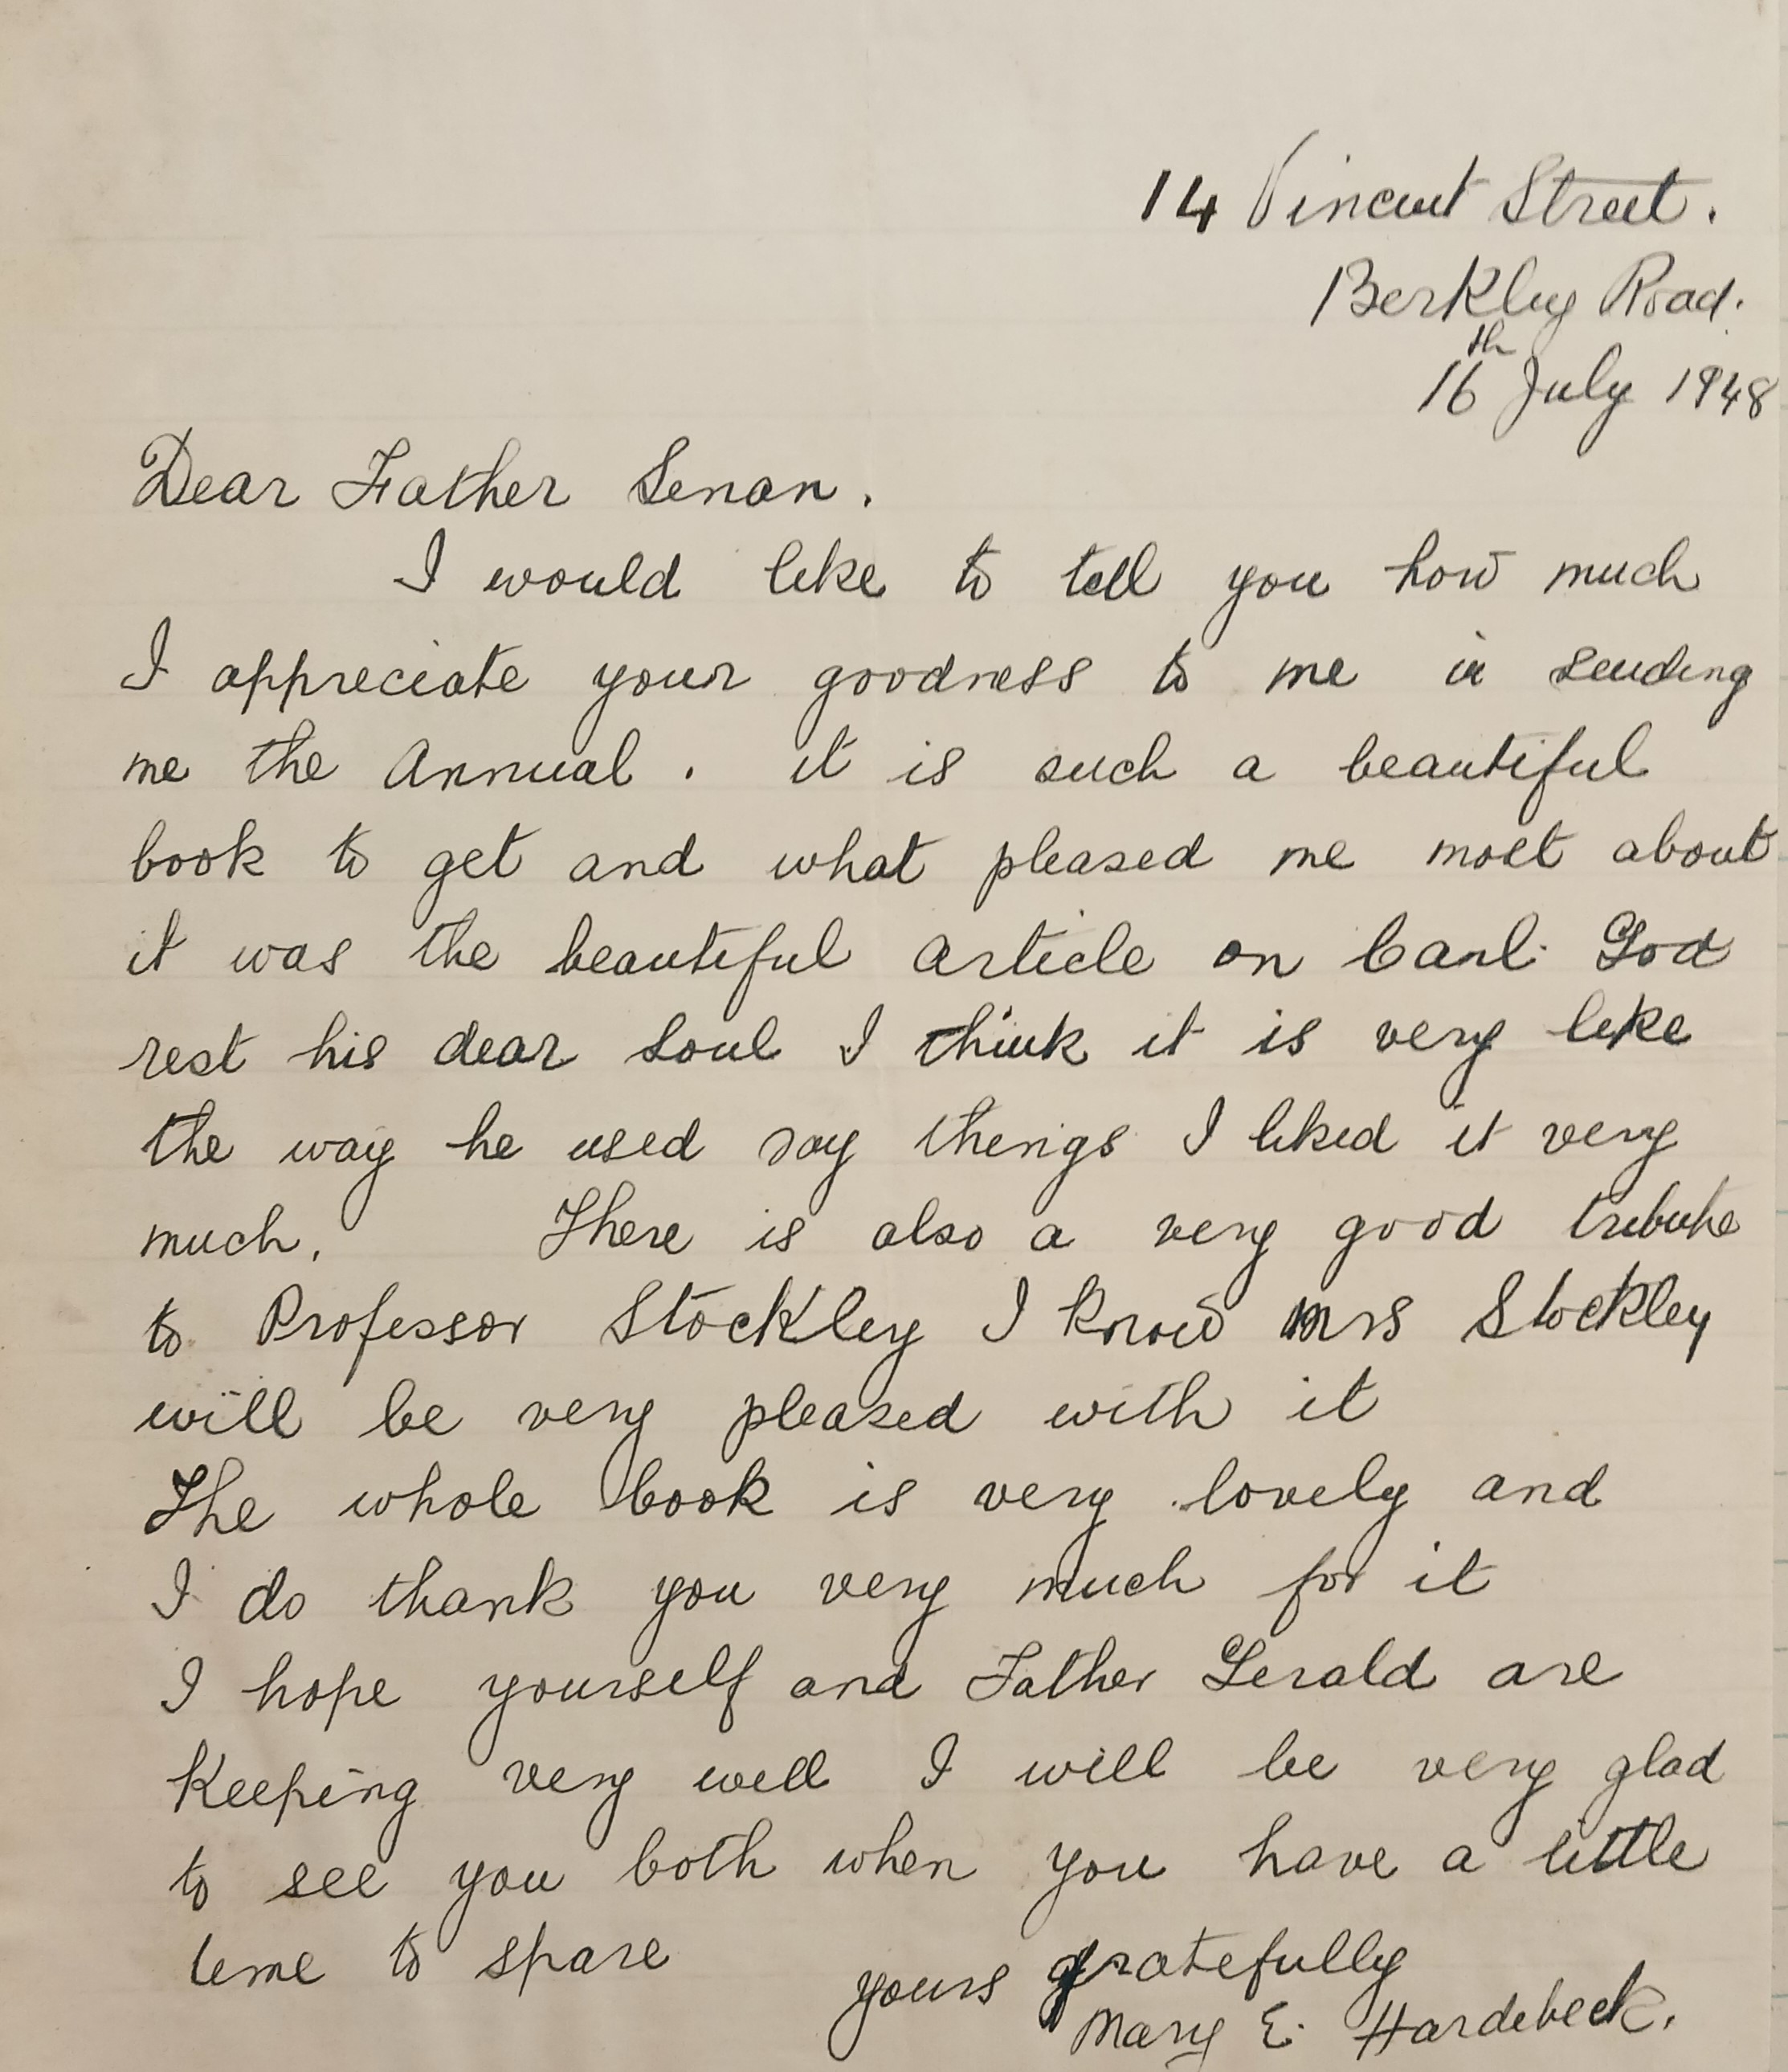 14 Vincent Street.
Berkley Road.
16th July 1948
Dear Father Senan.
I would like to tell you how much
I appreciate your goodness to me in sending
me the Annual. it is such a beautiful
book to get and what pleased me most about
it was the beautiful article on Carl. God
rest his dear soul I think it is very like
the way he used say things I liked it very
much. There is also a very good tribute
to Professor Stockley I know Mrs Stockley
will be very pleased with it
The whole book is very lovely and
I do thank you very much for it
I hope yourself and Father Gerald are
Keeping very well I will be very glad
to see you both when you have a little
time to spare
yours gratefully
Mary E. Hardebeck.